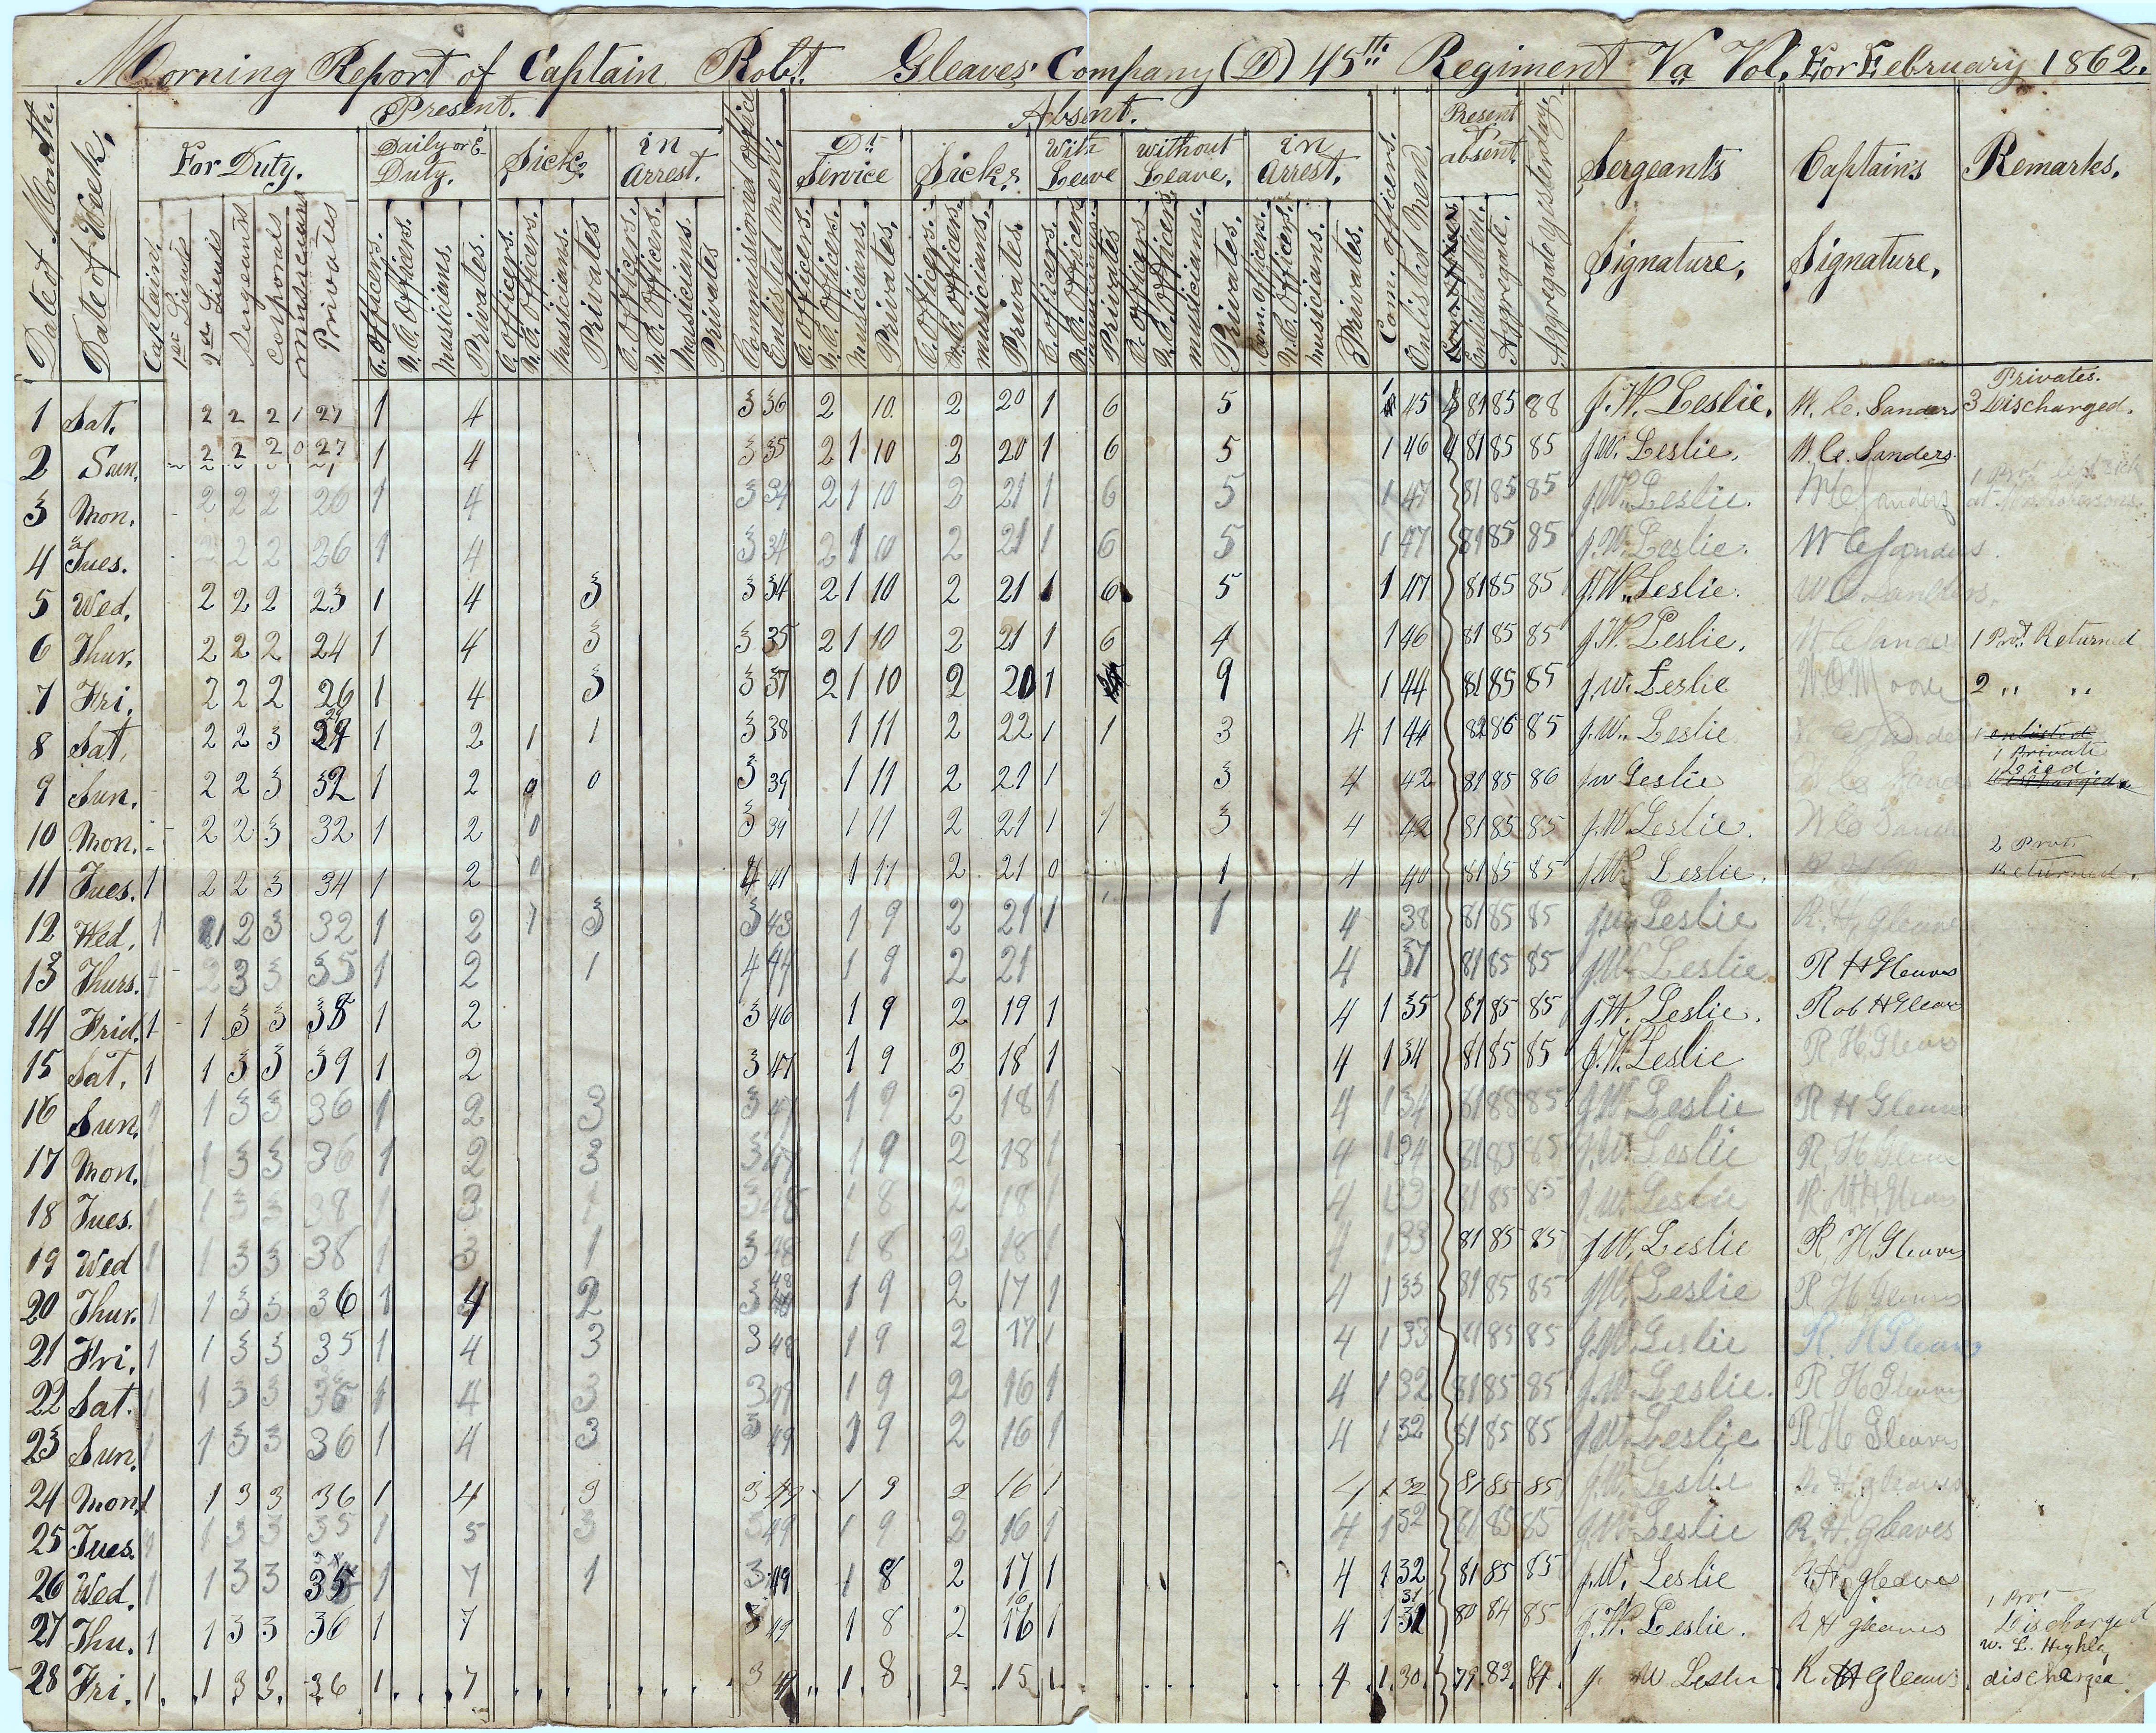 Morning Report of Captain Robt. Gleaves Company (D) 45th Regiment Va Vol. For February 1862.
Present. Absent. Present & absent.
Date of Month. Date of Week. For Duty. Daily or E- Duty. Sick. in Arrest. Commissioned Officers Enlisted Men. Dt. Service Sick. With Leave without Leave. in Arrest. Com. Officers. Enlisted Men. Aggregate yesterday. Sergeants Signature. Captain's Signature. Remarks.
Captain. 1st Lieut 2nd Lieuts Sergeants Corporals musicians Privates C. Officers. N.C. Officers. Musicians. Privates. C. Officers. N.C. Officers. Musicians. Privates C. Officers. N.C. Officers. Musicians. Privates C. Officers. N.C. Officers. Musicians. Privates. C. Officers. N.C. Officers. musicians. Privates C. Officers. N.C. Officers Privates C. Officers N.C. Officers musicians. Privates. Com. Officers. N.C. Officers. musicians. Privates. Enlisted Men. Aggregate.
Privates.
1 Sat. 2 2 2 1 27 1 4 3 36 2 10. 2 20 1 6 5 45 81 85 88 J. W. Leslie. W. C. Sanders 3 Discharged.
2 Sun. 2 2 2 0 27 1 4 3 35 2 1 10 2 20 1 6 5 1 46 81 85 85 J. W. Leslie. W. C. Sanders.
3 Mon. 2 2 2 26 1 4 3 34 2 1 10 2 21 1 6 5 1 47 81 85 85 J. W. Leslie. W C Sanders
4 Tues. 2 2 2 26 1 4 3 34 2 1 10 2 21 1 6 5 1 47 81 85 85 J. W. Leslie. W C Sanders
5 Wed. 2 2 2 23 1 4 3 3 34 2 1 10 2 21 1 6 5 1 47 81 85 85 J. W. Leslie. W. C. Sanders.
6 Thur. 2 2 2 24 1 4 3 3 35 2 1 10 2 21 1 6 4 1 46 81 85 85 J. W. Leslie. W C Sanders 1 Prvt. Returned
7 Fri. 2 2 2 26 1 4 3 3 37 2 1 10 2 20 1 9 1 44 81 85 85 J. W. Leslie W. O. Moore 2 " "
8 Sat. 2 2 3 29 1 2 1 1 3 38 1 11 2 22 1 1 3 4 1 44 82 86 85 J. W. Leslie 1 enlisted
1 Private
Died
9 Sun. 2 2 3 32 1 2 0 0 3 39 1 11 2 21 1 3 4 42 81 85 86 J W Leslie discharged
10 Mon. 2 2 3 32 1 2 0 3 39 1 11 2 21 1 1 3 4 42 81 85 85 J. W Leslie.
2 Prvts
11 Tues. 1 2 2 3 34 1 2 0 4 41 1 11 2 21 0 1 4 40 81 85 85 J. W. Leslie. Returned.
12 Wed. 1 2 3 32 1 2 1 3 3 43 1 9 2 21 1 1 4 38 81 85 85 J W Leslie R. H. Gleaves
13 Thurs. 2 3 3 35 1 2 1 4 44 1 9 2 21 4 37 81 85 85 J. W. Leslie. R H Gleaves
14 Frid. 1 1 3 3 38 1 2 3 46 1 9 2 19 1 4 1 35 81 85 85 J. W. Leslie. Rob H Gleaves
15 Sat. 1 1 3 3 39 1 2 3 47 1 9 2 18 1 4 1 34 81 85 85 J. W. Leslie R. H. Gleaves
16 Sun. 1 1 3 3 36 1 2 3 3 47 1 9 2 18 1 4 1 34 81 85 85 J. W. Leslie R H Gleaves
17 Mon. 1 1 3 3 36 1 2 3 3 47 1 9 2 18 1 4 1 34 81 85 85 J. W. Leslie R. H. Gleaves
18 Tues. 1 1 3 3 38 1 3 1 3 48 1 8 2 18 1 4 1 33 81 85 85 J. W. Leslie R. H. Gleaves
19 Wed 1 1 3 3 38 1 3 1 3 48 1 8 2 18 1 4 1 33 81 85 85 J W. Leslie R. H. Gleaves
20 Thur. 1 1 3 3 36 1 4 2 3 48 1 9 2 17 1 4 1 33 81 85 85 J. W. Leslie R H Gleaves
21 Fri. 1 1 3 3 35 1 4 3 3 48 1 9 2 17 1 4 1 33 81 85 85 J. W. Leslie R. H Gleaves
22 Sat. 1 1 3 3 36 1 4 3 3 49 1 9 2 16 1 4 1 32 81 85 85 J. W. Leslie. R H Gleaves
23 Sun. 1 1 3 3 36 1 4 3 3 49 1 9 2 16 1 4 1 32 81 85 85 J. W. Leslie R H Gleaves
24 Mon. 1 1 3 3 36 1 4 3 3 49 1 9 2 16 1 4 1 32 81 85 85 J. W. Leslie R. H. Gleaves
25 Tues. 1 1 3 3 35 1 5 3 3 49 1 9 2 16 1 4 1 32 81 85 85 J. W. Leslie R. H. Gleaves
26 Wed. 1 1 3 3 35 1 7 1 3 49 1 8 2 17 1 4 1 32 81 85 85 J. W. Leslie R H. gleaves
1 Prvt
27 Thu. 1 1 3 3 36 1 7 3 49 1 8 2 16 1 4 1 31 80 84 85 J. W. Leslie. R H gleaves Discharged
W. L. Highly
28 Fri. 1. 1 3 3. 36 1. 7 3 49 1. 8 2. 15 1. 4 1. 30. 79. 83. 84. J W Leslie R. H gleaves discharged.